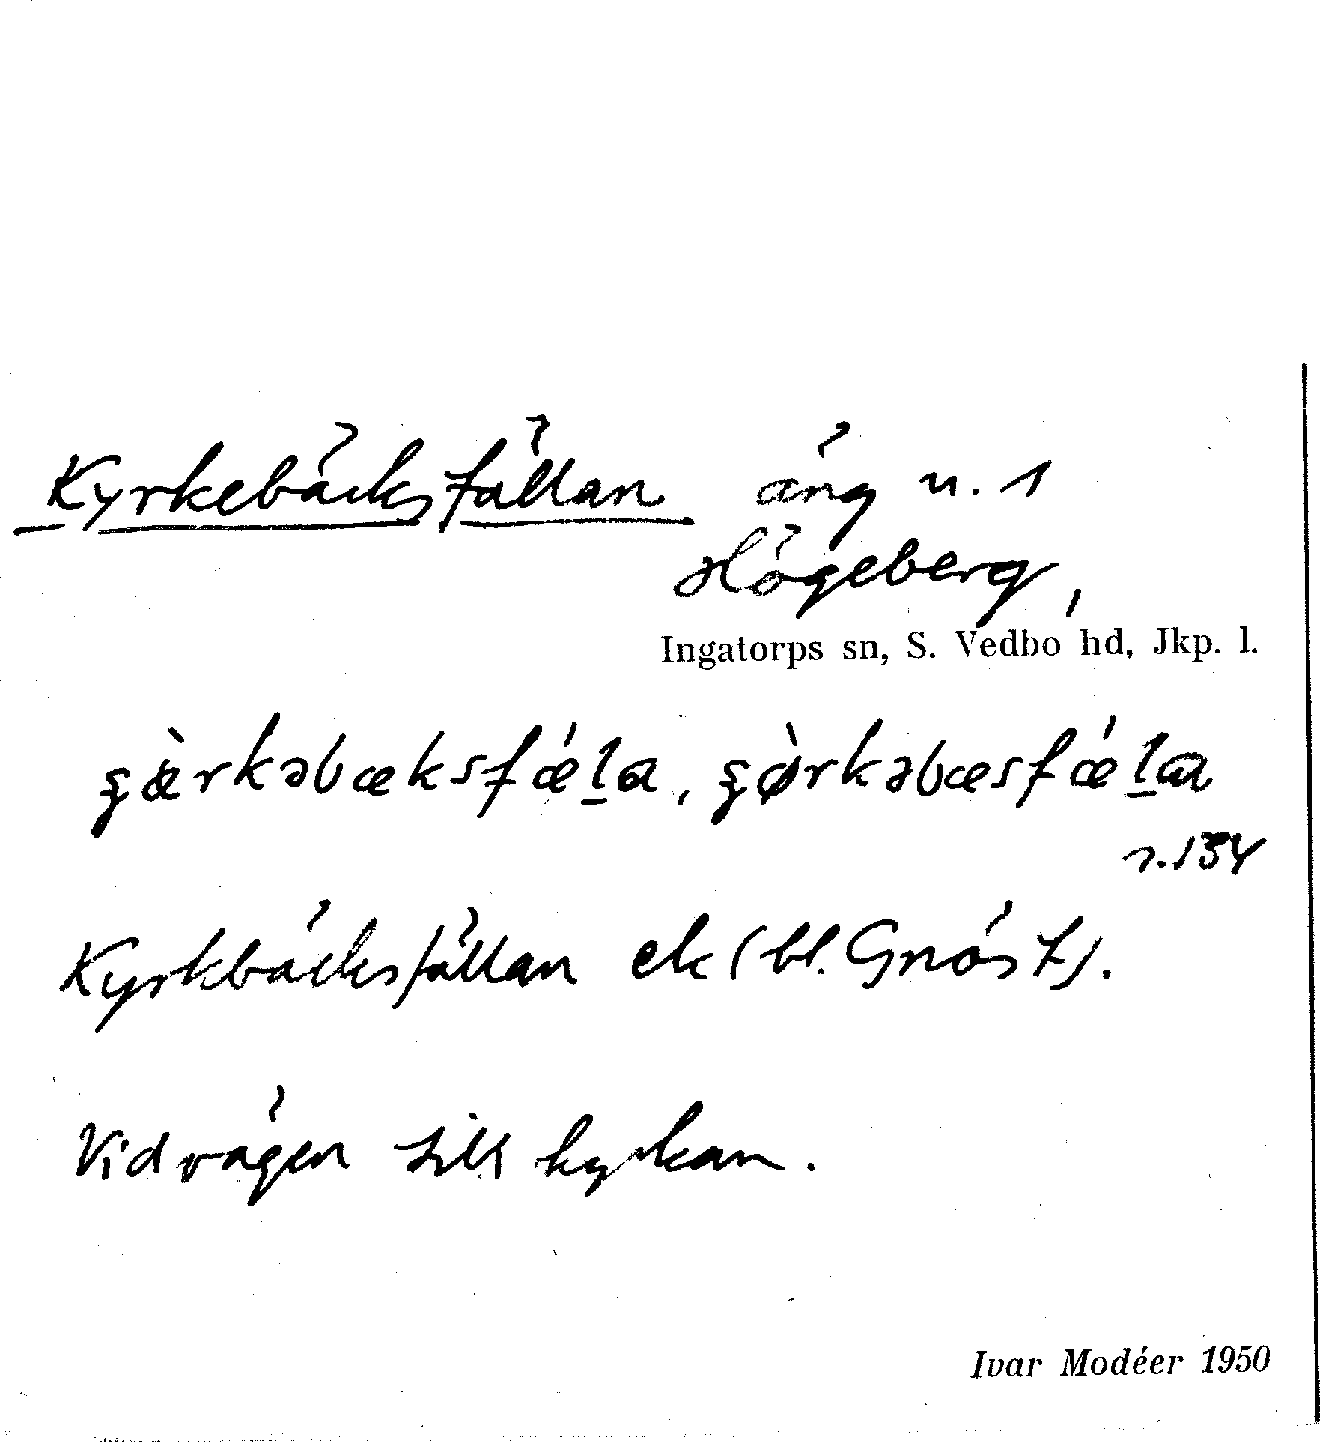 Kyrkebäcksfällan äng u. 1
Högeberg,
Ingatorps sn, S. Vedbo hd, Jkp. l.
ʂæ̀rkəbæksfǽḻa, ʂø̀rkəbæsfǽḻa
r. 134
Kyrkbäcksfällan ek (bl. Gnöst).
Vid vägen till kyrkan.
Ivar Modéer 1950